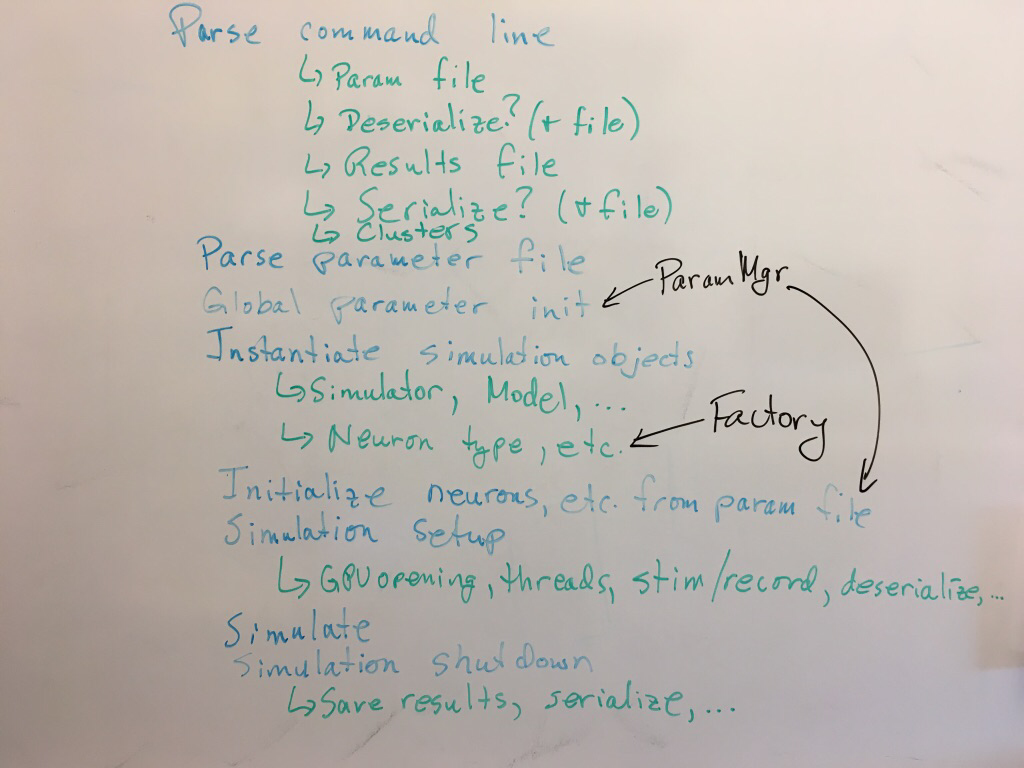 Parse command line
↳ Param file
↳ Deserialize? (+ file)
↳ Results file
↳ Serialize? (+ file)
↳ Clusters
Parse parameter file
Global parameter init ← ParamMgr
Instantiate simulation objects
↳ Simulator, Model, ...
↳ Neuron type, etc. ← Factory
Initialize neurons, etc. from param file
Simulation setup
↳ GPU opening, threads, stim/record, deserialize, ...
Simulate
Simulation shutdown
↳ Save results, serialize, ...